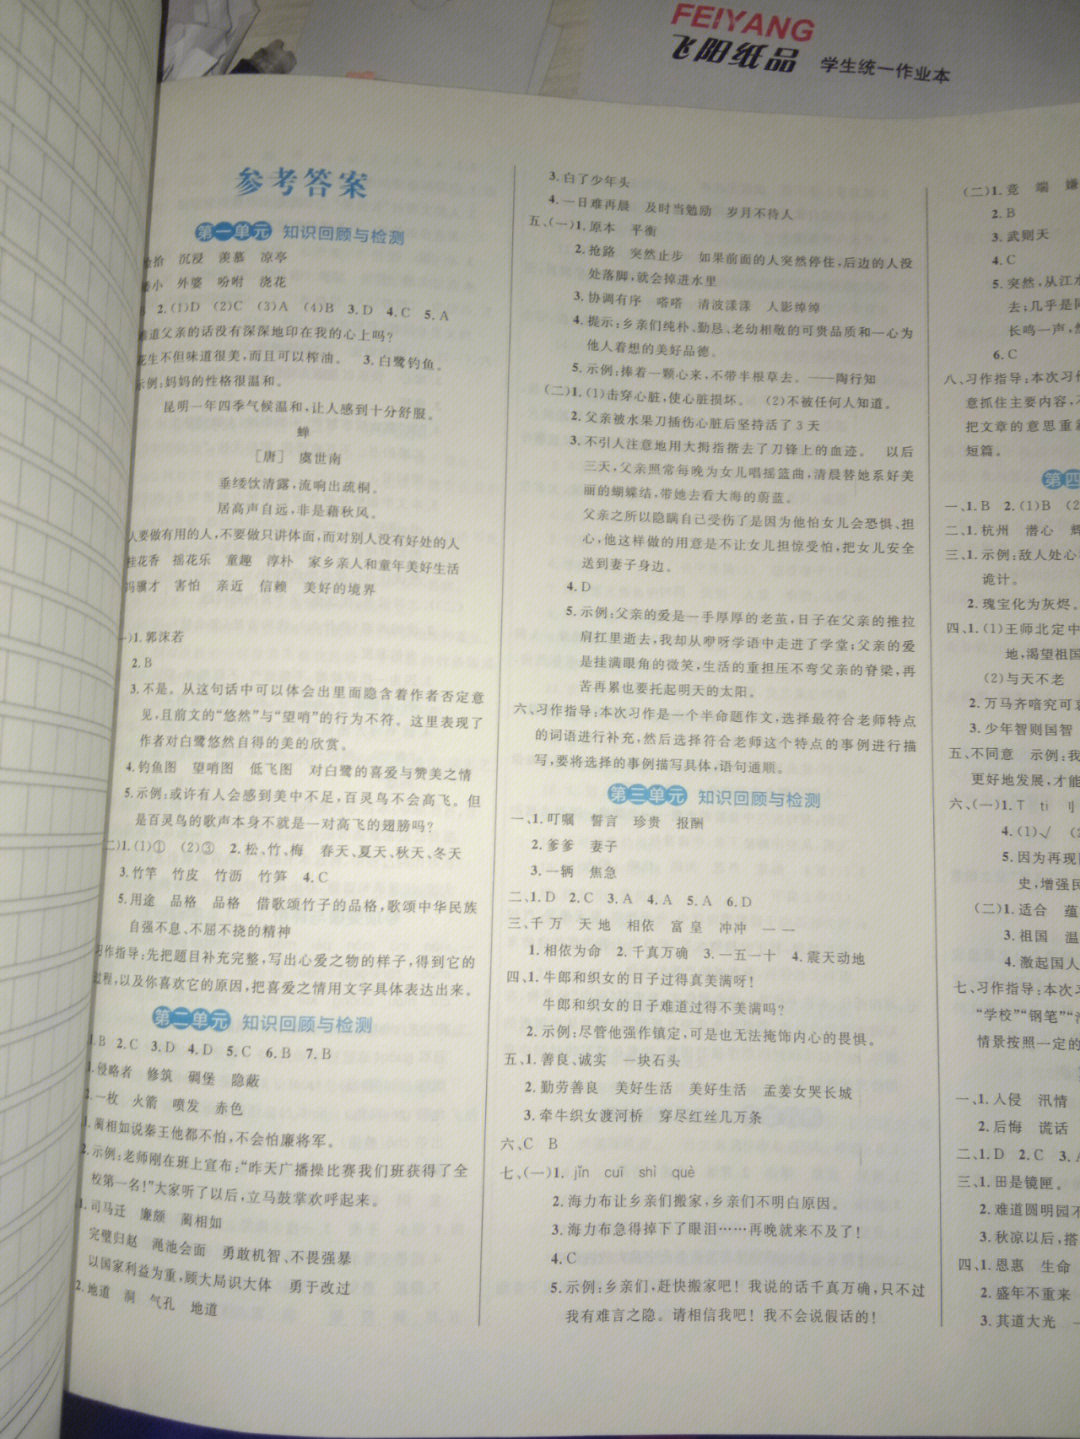 FEIYANG
飞阳纸品 学生统一作业本
参考答案
第一单元 知识回顾与检测
拾 沉浸 羡慕 凉亭
小 外婆 吩咐 浇花
2.(1)D (2)C (3)A (4)B 3.D 4.C 5.A
道父亲的话没有深深地印在我的心上吗?
花生不但味道很美,而且可以榨油。 3.白鹭钓鱼。
示例:妈妈的性格很温和。
昆明一年四季气候温和,让人感到十分舒服。
蝉
[唐] 虞世南
垂緌饮清露,流响出疏桐。
居高声自远,非是藉秋风。
人要做有用的人,不要做只讲体面,而对别人没有好处的人
桂花香 摇花乐 童趣 淳朴 家乡亲人和童年美好生活
冯骥才 害怕 亲近 信赖 美好的境界
一)1.郭沫若
2.B
3.不是。从这句话中可以体会出里面隐含着作者否定意
见,且前文的“悠然”与“望哨”的行为不符。这里表现了
作者对白鹭悠然自得的美的欣赏。
4.钓鱼图 望哨图 低飞图 对白鹭的喜爱与赞美之情
5.示例:或许有人会感到美中不足,百灵鸟不会高飞。但
是百灵鸟的歌声本身不就是一对高飞的翅膀吗?
二)1.(1)① (2)③ 2.松、竹、梅 春天、夏天、秋天、冬天
3.竹竿 竹皮 竹沥 竹笋 4.C
5.用途 品格 品格 借歌颂竹子的品格,歌颂中华民族
自强不息、不屈不挠的精神
习作指导:先把题目补充完整,写出心爱之物的样子,得到它的
过程,以及你喜欢它的原因,把喜爱之情用文字具体表达出来。
第二单元 知识回顾与检测
1.B 2.C 3.D 4.D 5.C 6.B 7.B
1.侵略者 修筑 碉堡 隐蔽
2.一枚 火箭 喷发 赤色
1.蔺相如说秦王他都不怕,不会怕廉将军。
2.示例:老师刚在班上宣布:“昨天广播操比赛我们班获得了全
校第一名!”大家听了以后,立马鼓掌欢呼起来。
1.司马迁 廉颇 蔺相如
完璧归赵 渑池会面 勇敢机智、不畏强暴
以国家利益为重,顾大局识大体 勇于改过
2.地道 洞 气孔 地道
3.白了少年头
4.一日难再晨 及时当勉励 岁月不待人
五、(一)1.原本 平衡
2.抢路 突然止步 如果前面的人突然停住,后边的人没
处落脚,就会掉进水里
3.协调有序 嗒嗒 清波漾漾 人影绰绰
4.提示:乡亲们纯朴、勤恳、老幼相敬的可贵品质和一心为
他人着想的美好品德。
5.示例:捧着一颗心来,不带半根草去。——陶行知
(二)1.(1)击穿心脏,使心脏损坏。 (2)不被任何人知道。
2.父亲被水果刀插伤心脏后坚持活了3天
3.不引人注意地用大拇指揩去了刀锋上的血迹。 以后
三天,父亲照常每晚为女儿唱摇篮曲,清晨替她系好美
丽的蝴蝶结,带她去看大海的蔚蓝。
父亲之所以隐瞒自己受伤了是因为他怕女儿会恐惧、担
心,他这样做的用意是不让女儿担惊受怕,把女儿安全
送到妻子身边。
4.D
5.示例:父亲的爱是一手厚厚的老茧,日子在父亲的推拉
肩扛里逝去,我却从咿呀学语中走进了学堂;父亲的爱
是挂满眼角的微笑,生活的重担压不弯父亲的脊梁,再
苦再累也要托起明天的太阳。
六、习作指导:本次习作是一个半命题作文,选择最符合老师特点
的词语进行补充,然后选择符合老师这个特点的事例进行描
写,要将选择的事例描写具体,语句通顺。
第三单元 知识回顾与检测
一、1.叮嘱 誓言 珍贵 报酬
2.爹爹 妻子
3.一辆 焦急
二、1.D 2.C 3.A 4.A 5.A 6.D
三、千 万 天 地 相依 富 皇 冲冲 一 一
1.相依为命 2.千真万确 3.一五一十 4.震天动地
四、1.牛郎和织女的日子过得真美满呀!
牛郎和织女的日子难道过得不美满吗?
2.示例:尽管他强作镇定,可是也无法掩饰内心的畏惧。
五、1.善良、诚实 一块石头
2.勤劳善良 美好生活 美好生活 孟姜女哭长城
3.牵牛织女渡河桥 穿尽红丝几万条
六、C B
七、(一)1. jǐn cuī shì què
2.海力布让乡亲们搬家,乡亲们不明白原因。
3.海力布急得掉下了眼泪……再晚就来不及了!
4.C
5.示例:乡亲们,赶快搬家吧! 我说的话千真万确,只不过
我有难言之隐。请相信我吧! 我不会说假话的!
(二)1.竟 端 嫌
2.B
3.武则天
4.C
5.突然,从江水
去;几乎是同
长鸣一声,然
6.C
八、习作指导:本次习作
意抓住主要内容,不
把文章的意思重新
短篇。
第四
一、1.B 2.(1)B (2
二、1.杭州 潜心 辉
三、1.示例:敌人处心
诡计。
2.瑰宝化为灰烬。
四、1.(1)王师北定中
地,渴望祖国
(2)与天不老
2.万马齐喑究可哀
3.少年智则国智
五、不同意 示例:我
更好地发展,才能
六、(一)1.T tì 刂
4.(1)√ (
5.因为再现圆
史,增强民
(二)1.适合 蕴
3.祖国 温
4.激起国人
七、习作指导:本次习
“学校”“钢笔”“
情景按照一定的
一、1.人侵 汛情
2.后悔 谎话
二、1.D 2.C 3.A
三、1.田是镜匣。
2.难道圆明园不
3.秋凉以后,搭
四、1.恩惠 生命
2.盛年不重来
3.其道大光 一